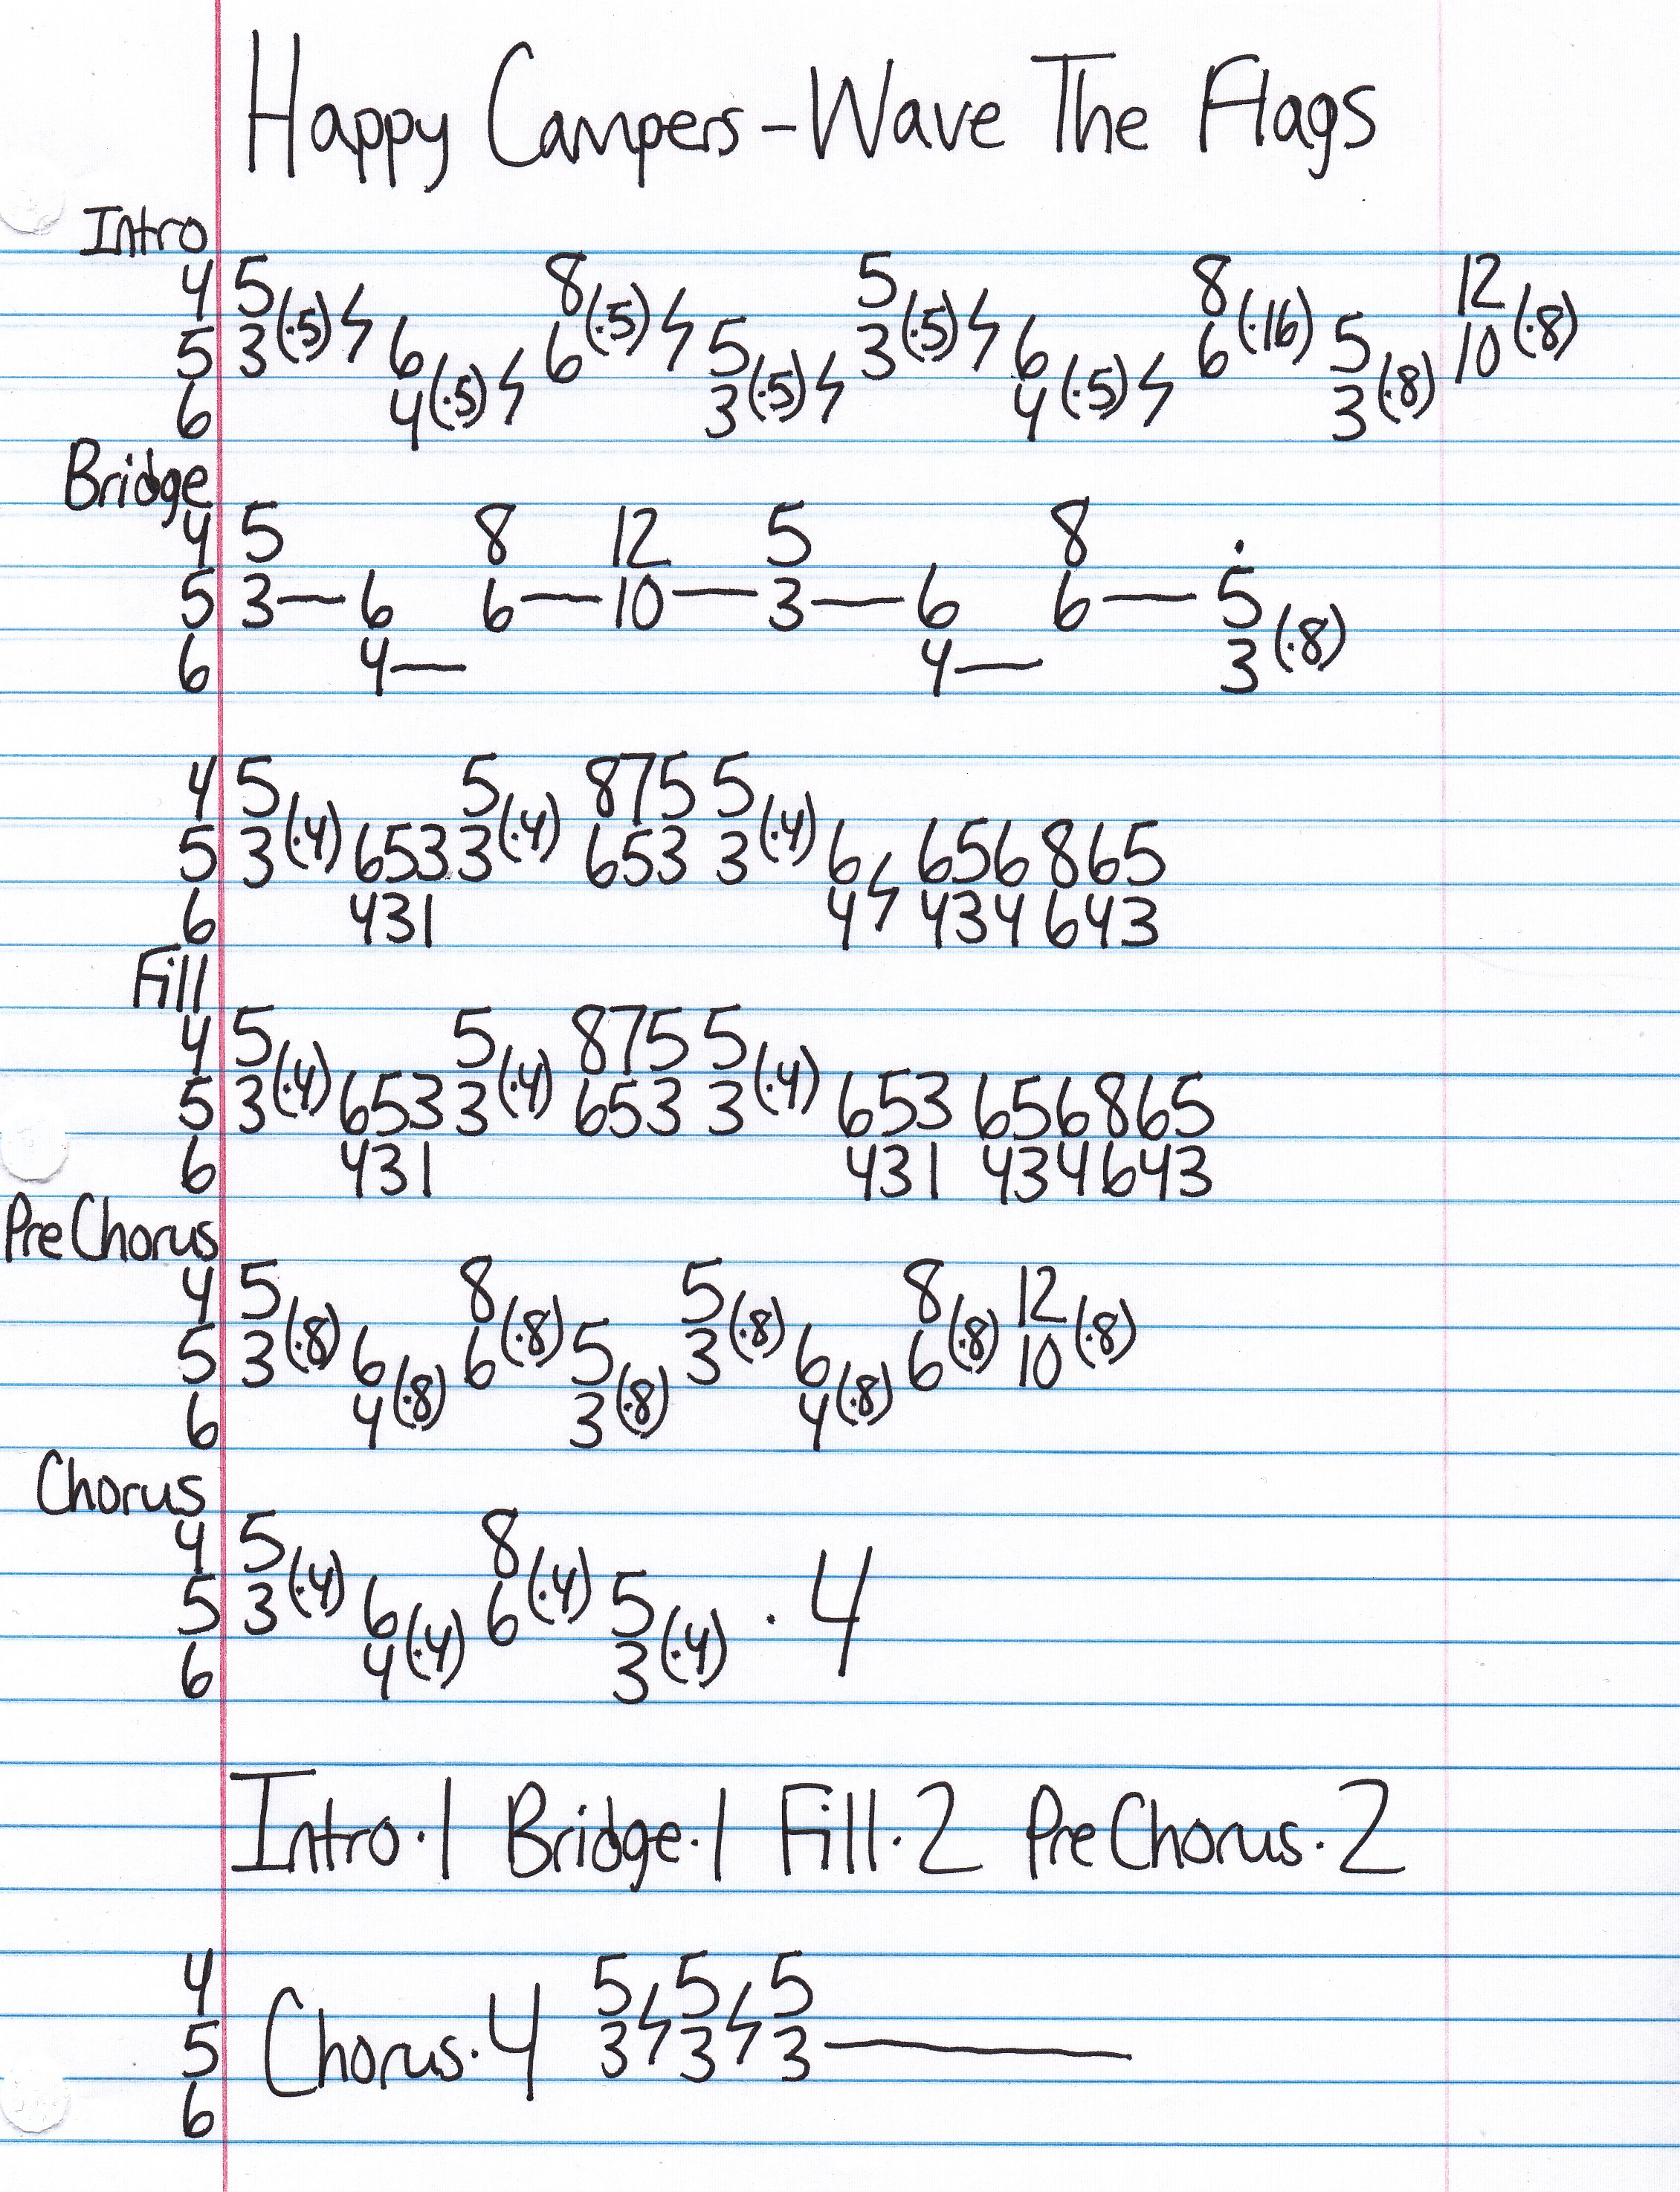 Happy Campers - Wave The Flags
Intro
4 5 8 5 8 12
5 3(·5)ϟ 6 6(·5)ϟ 5 3(·5)ϟ 6 6(·16) 5 10(·8)
6 4(·5)ϟ 3(·5)ϟ 4(·5)ϟ 3(·8)
Bridge
4 5 8 12 5 8 ·
5 3— 6 6— 10— 3— 6 6— 5
6 4— 4— 3(·8)
4 5 5 875 5
5 3(·4) 653 3(·4) 653 3(·4) 6 656 865
6 431 4ϟ 434 643
Fill
4 5 5 875 5
5 3(·4) 653 3(·4) 653 3(·4) 653 656 865
6 431 431 434 643
PreChorus
4 5 8 5 8 12
5 3(·8) 6 6(·8) 5 3(·8) 6 6(·8) 10(·8)
6 4(·8) 3(·8) 4(·8)
Chorus
4 5 8
5 3(·4) 6 6(·4) 5 · 4
6 4(·4) 3(·4)
Intro·1 Bridge·1 Fill·2 PreChorus·2
4 5 5 5
5 Chorus·4 3ϟ3ϟ3—
6